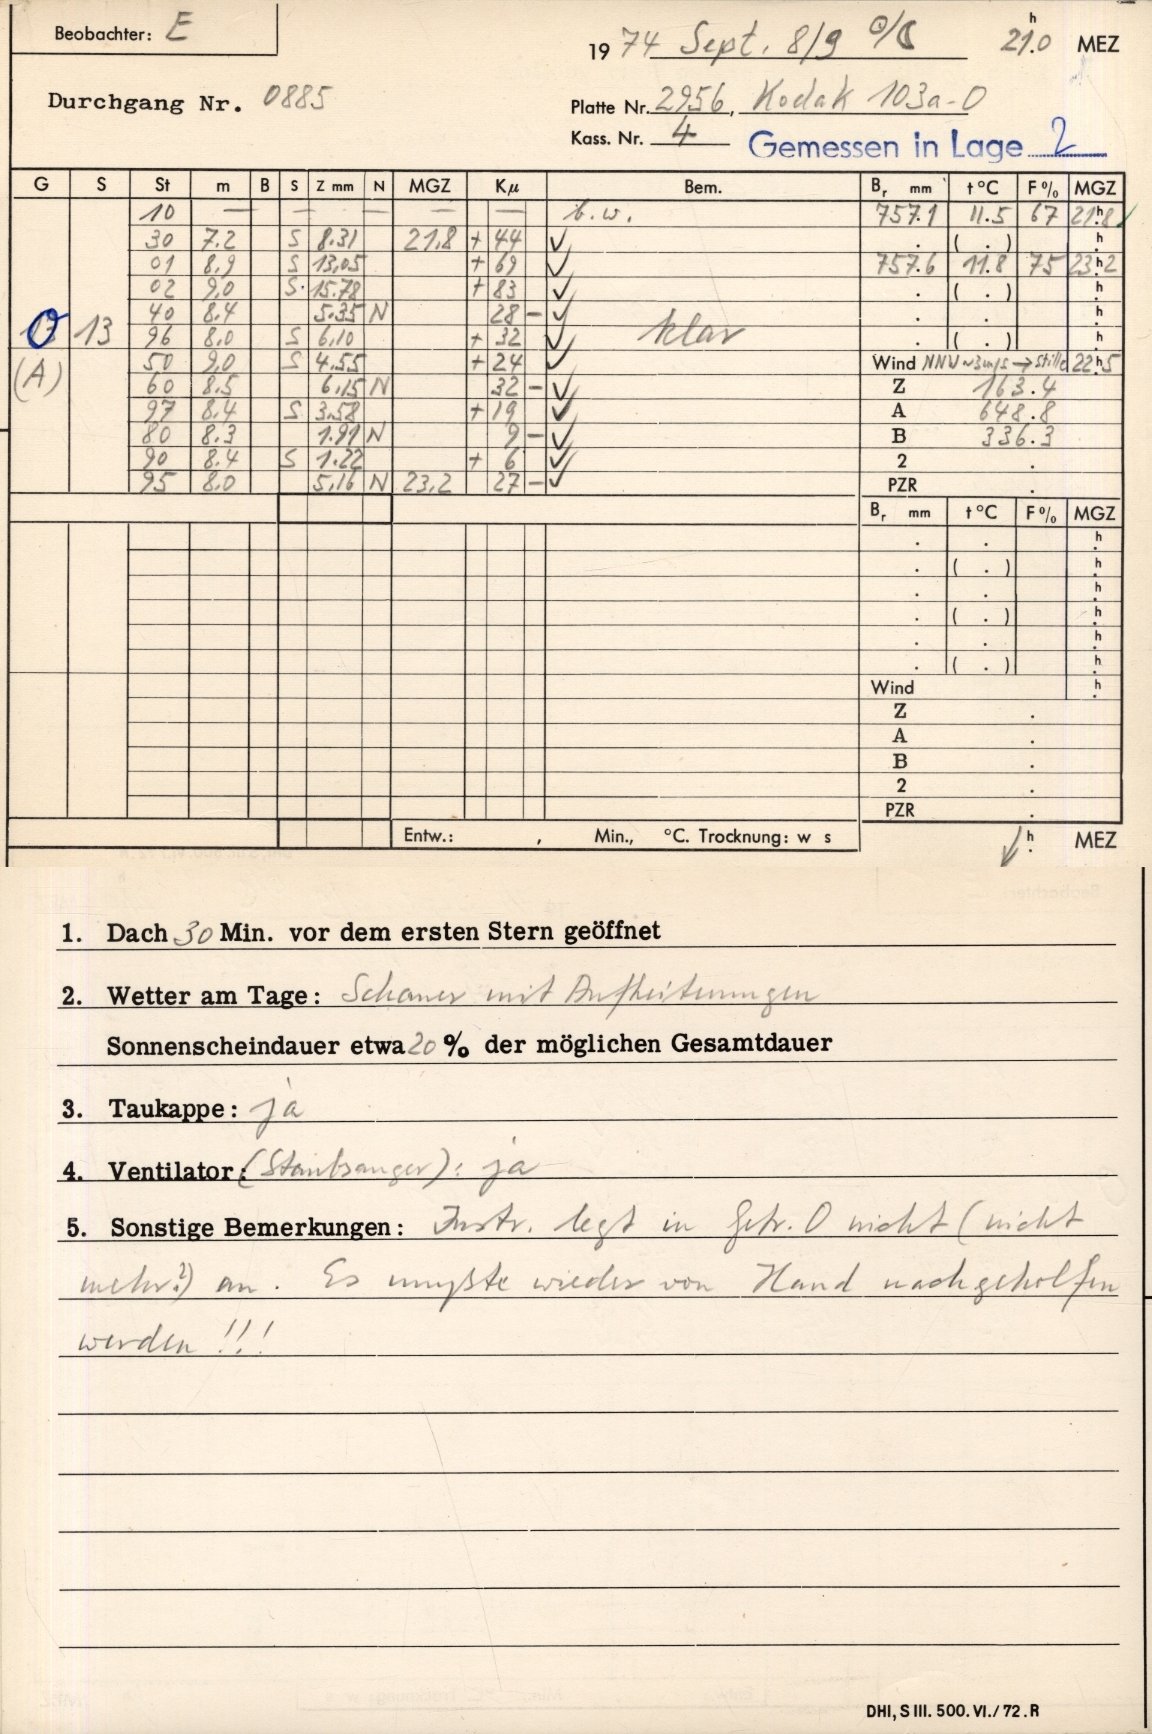 Beobachter: E
1974 Sept. 8/9 ☉/☾ 21.0 h MEZ
Durchgang Nr. 0885
Platte Nr. 2956, Kodak 103a-O
Kass. Nr. 4
Gemessen in Lage 2
G S St m B S Z mm N MGZ Kµ Bem. Br mm t °C F % MGZ
10 — — — — — b.w. 757.1 11.5 67 21.8 h
30 7.2 S 8.31 21,8 + 44 ✓ . ( . ) h
01 8.9 S 13,05 + 69 ✓ 757.6 11.8 75 23.2 h
02 9,0 S 15.78 + 83 ✓ . ( . ) h
40 8.4 5.35 N 28 - ✓ . . h
O 13 96 8.0 S 6,10 + 32 ✓ klar . ( . ) h
(A) 50 9,0 S 4,55 + 24 ✓ Wind NNW ~3m/s → still 22.5 h
60 8.5 6,15 N 32 - ✓ Z 163.4
97 8.4 S 3.58 + 19 ✓ A 648.8
80 8.3 1.91 N 9 - ✓ B 336.3
90 8.4 S 1.22 + 6 ✓ 2 .
95 8.0 5,16 N 23,2 27 - ✓ PZR .
Br mm t °C F % MGZ
. . h
. ( . ) h
. . h
. ( . ) h
. . h
. ( . ) h
Wind h
Z .
A .
B .
2 .
PZR .
Entw.: , Min., °C. Trocknung: w s h. MEZ
1. Dach 30 Min. vor dem ersten Stern geöffnet
2. Wetter am Tage: Schauer mit Aufheiterungen
Sonnenscheindauer etwa 20 % der möglichen Gesamtdauer
3. Taukappe: ja
4. Ventilator: (Staubsauger): ja
5. Sonstige Bemerkungen: Instr. legt in Gr. O nicht (nicht
mehr?) an. Es mußte wieder von Hand nachgeholfen
werden !!!
DHI, S III. 500. VI./72. R